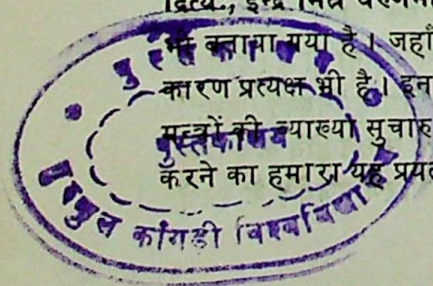 दित्य., इन्द्र मित्र
भी बताया गया है। जहाँ
कारण प्रत्यक्ष भी है। इन
मन्त्रों की व्याख्या सुचारु
करने का हमारा यह प्रयत
पुस्तकालय
पुस्तकालय
गुरुकुल काँगड़ी विश्वविद्या